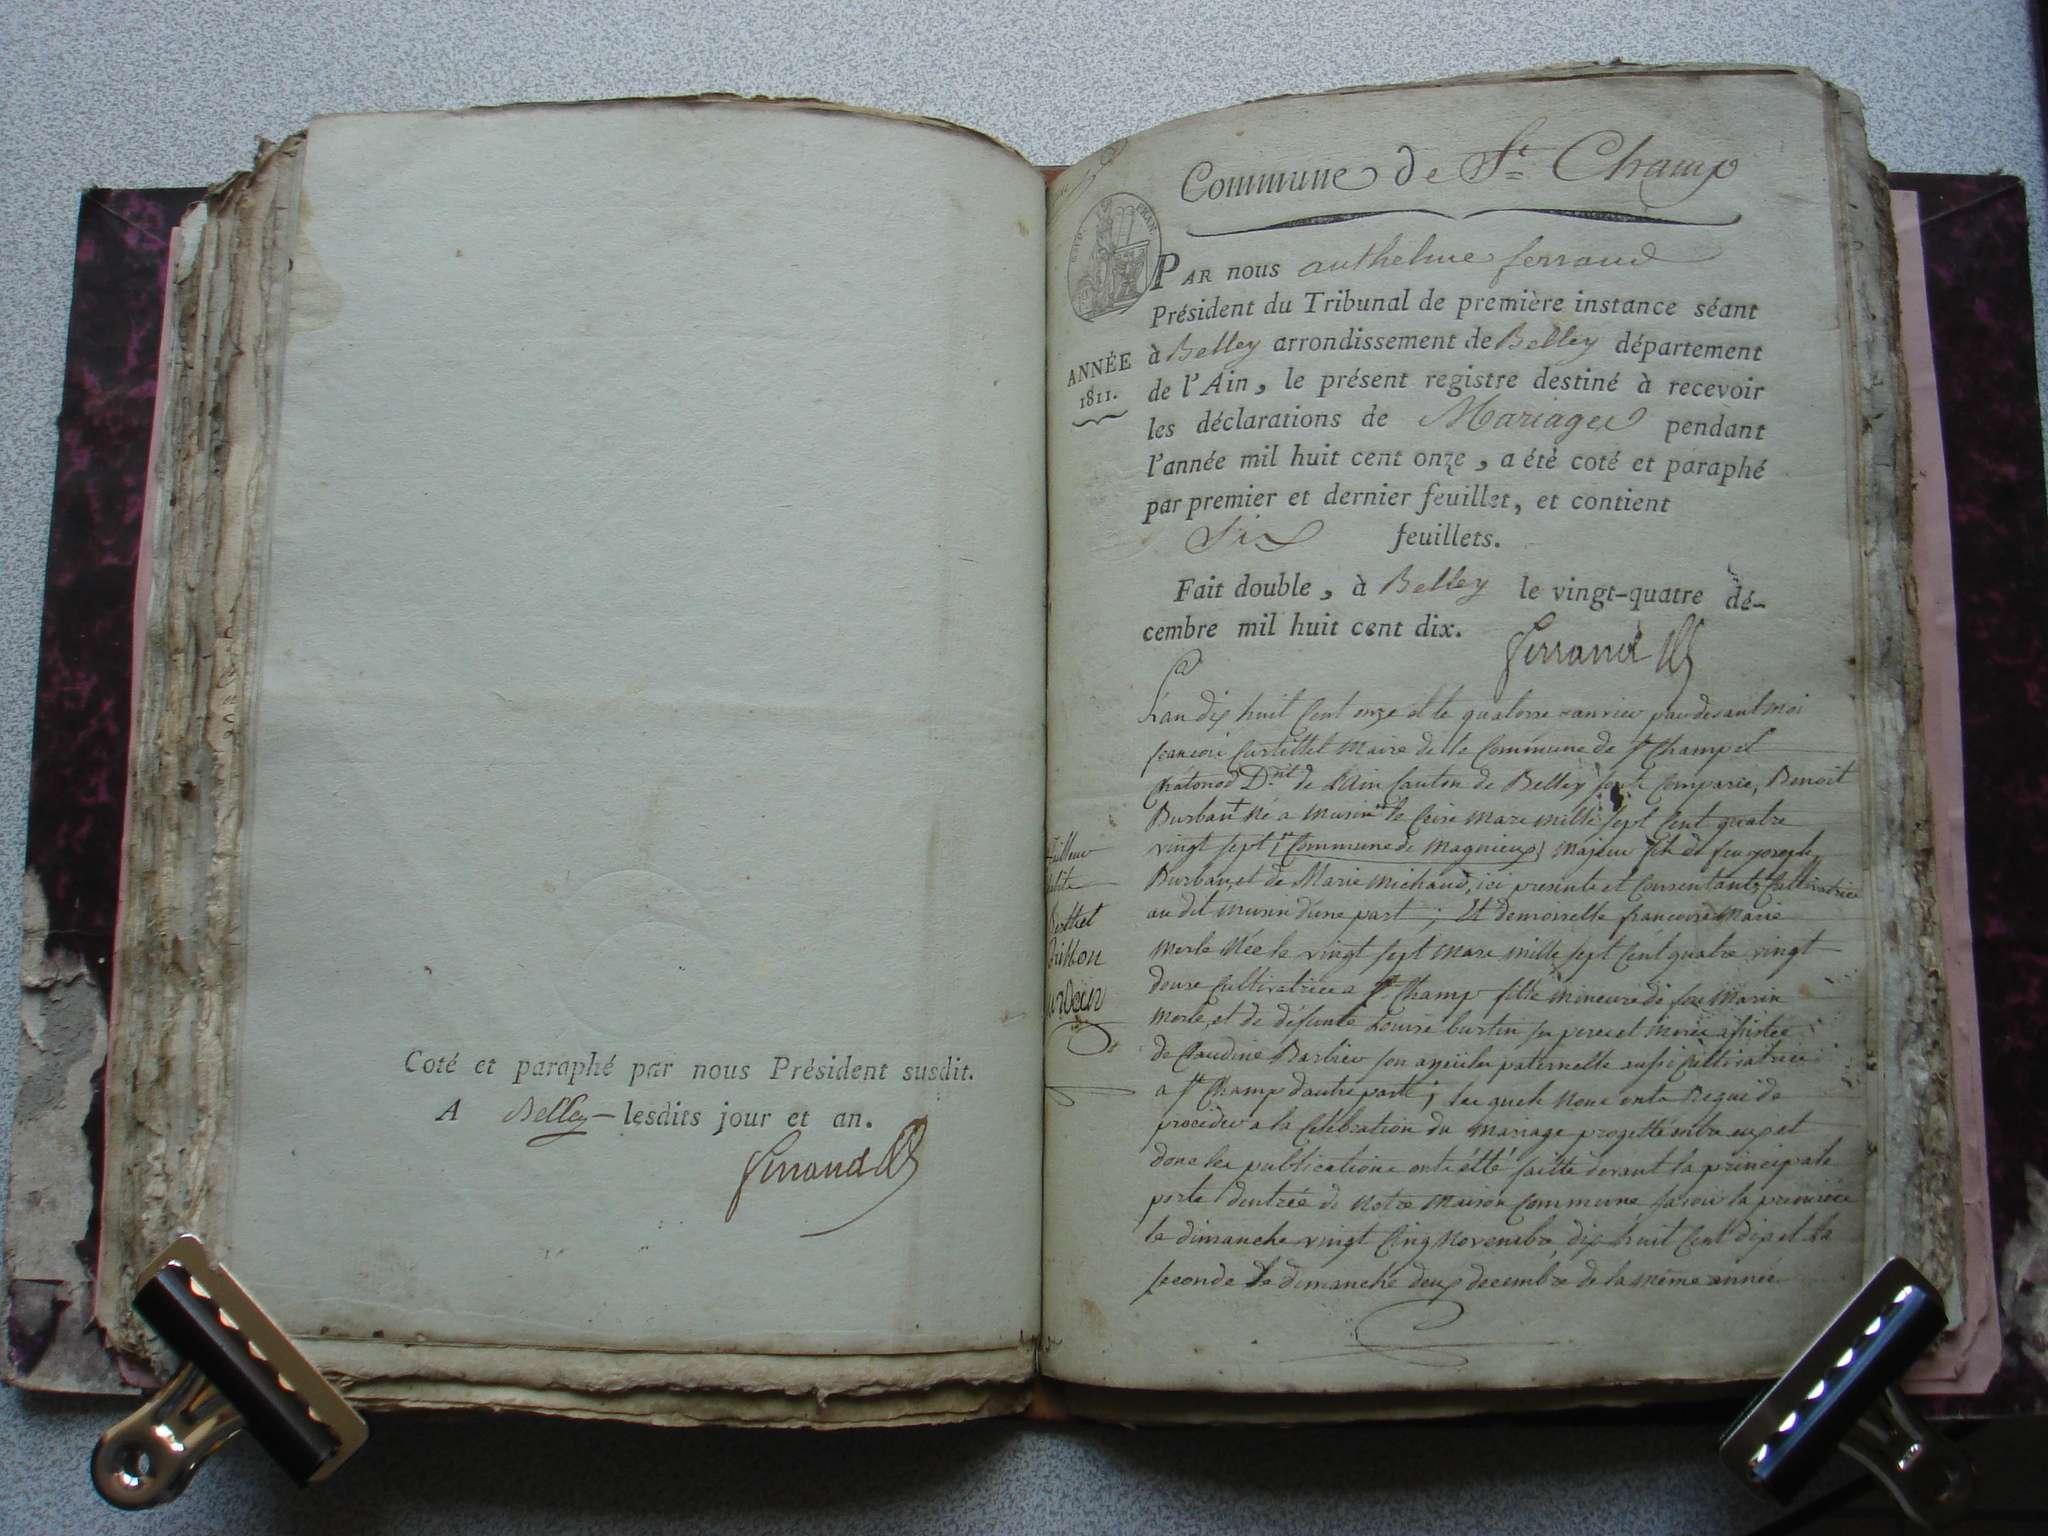 Coté et paraphé par nous Président susdit.
A Belley lesdits jour et an.
ferrand
Commune de St Champ
EMP. FRAN.
ANNÉE
1811.
PAR nous anthelme ferrand
Président du Tribunal de première instance séant
à Belley arrondissement de Belley département
de l'Ain, le présent registre destiné à recevoir
les déclarations de Mariages pendant
l'année mil huit cent onze, a été coté et paraphé
par premier et dernier feuillet, et contient
Six feuillets.
Fait double, à Belley le vingt-quatre dé-
cembre mil huit cent dix.
ferrand
Lan dix huit Cent onze et le quatorse janvier pardevant moi
francois Curtillet Maire de la Commune de St Champ et
Chatonod Dnt de L'Ain Canton de Belley Comparus, Benoit
Burban né a Musin le Mars mille sept Cent quatre
vingt sept (Commune de Magnieux) Majeur fils de feu joseph
Burban, et de Marie Michaud, ici presente et Consentante Cultivatrice
au dit Musin d'une part ; Et demoiselle francoise Marie
Merle Née le vingt sept Mars mille sept Cent quatre vingt
douse Cultivatrice a St Champ fille mineure de feu Marin
Merle, et de défunte Louise burtin ses pere et Mere assistée
de Claudine Barbier son ayeule paternelle aussi Cultivatrice
a St Champ d'autre part ; les quels nous onts Requi de
proceder a la Celebration du Mariage progetté entre eux et
dons les publications onts étté faitte devant la principale
porte dentrée de Notre Maison Commune, savoir la premiere
le dimanche vingt Cinq Novembre dix huit Cent dix et la
seconde le dimanche deux decembre de la même année